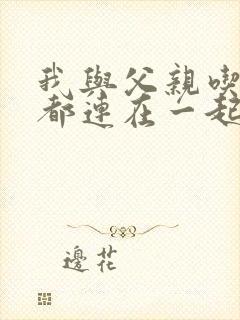 我與父親喫
都連在一起
邊花